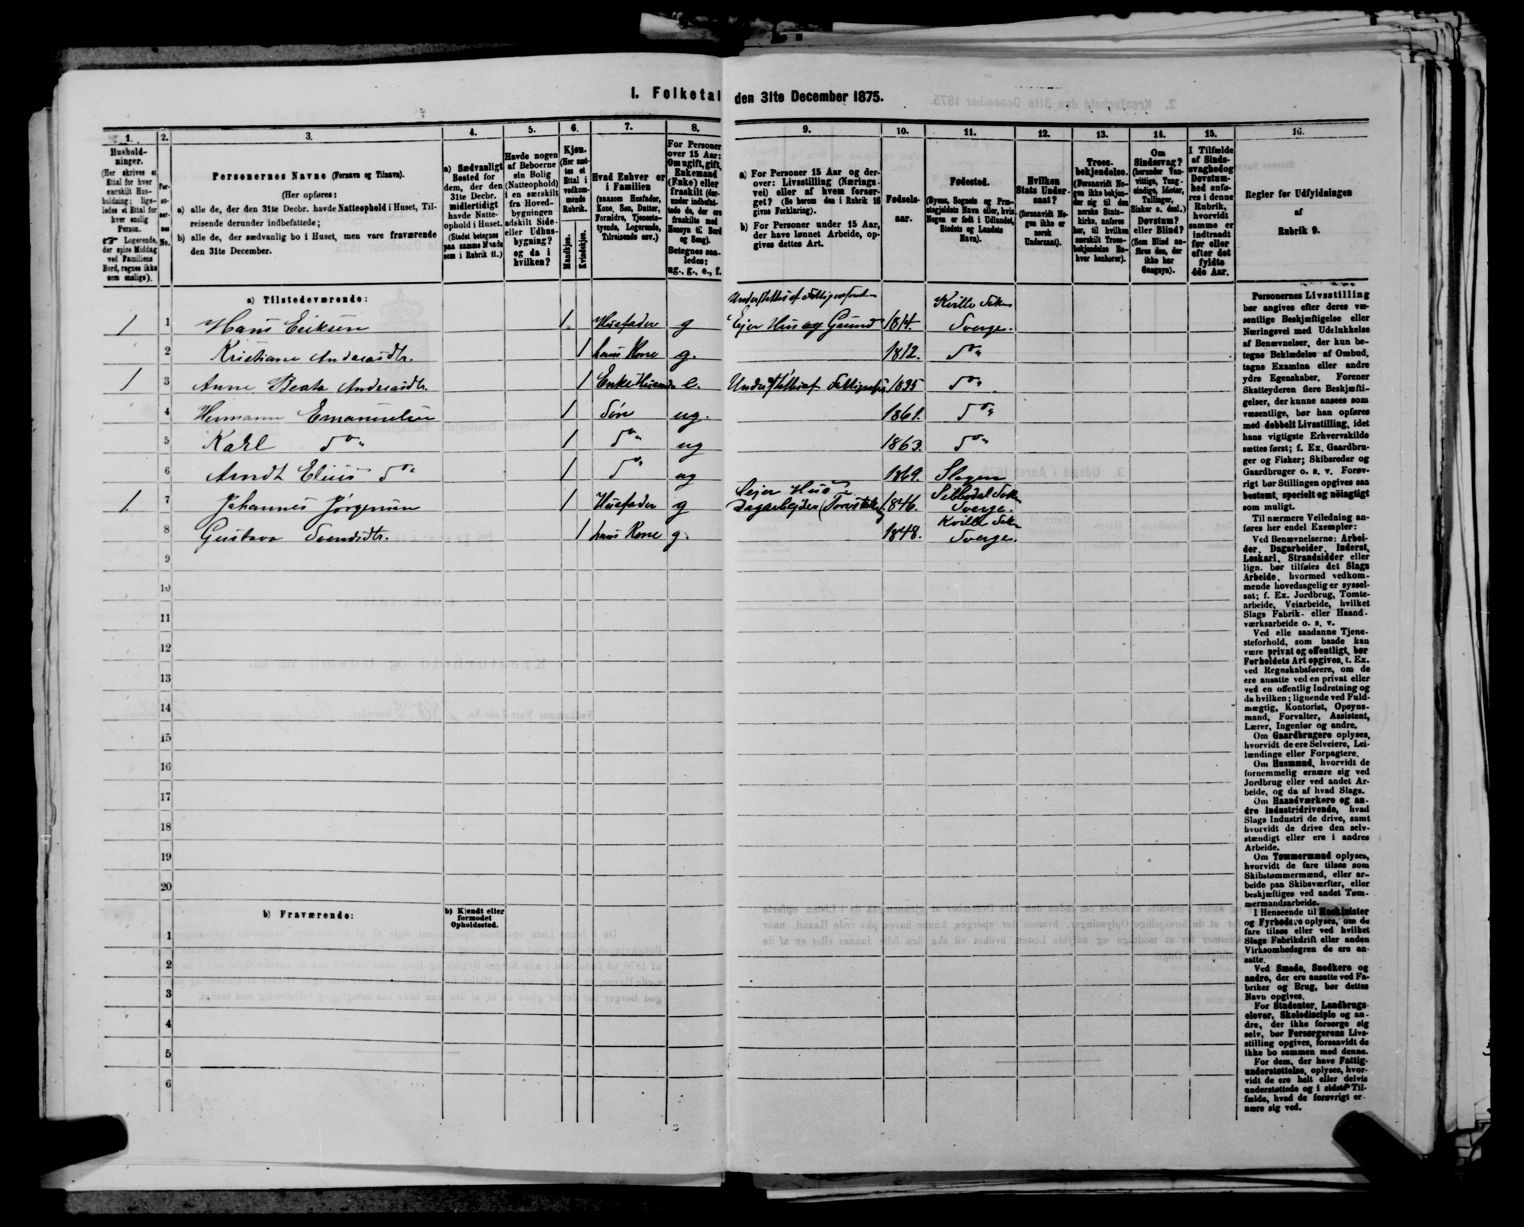 I. Folketal den 31te December 1875.
1. 2. 3. 4. 5. 6. 7. 8. 9. 10. 11. 12. 13. 14. 15. 16.
Husholdninger.
(Her skrives et Ettal for hver særskilt Husholdning; ligeledes et Ettal for hver enslig Person.
Logerende, der spise Middag ved Familiens Bord, regnes ikke som enslige).
Personernes No.
Personernes Navne (Fornavn og Tilnavn).
(Her opføres:
a) alle de, der den 31te Decbr. havde Natteophold i Huset, Tilreisende derunder indbefattede;
b) alle de, der sædvanlig bo i Huset, men vare fraværende den 31te December.
a) Sædvanligt Bosted for dem, der den 31te Decbr. midlertidigt havde Natteophold i Huset.
(Stedet betegnes paa samme Maade som i Rubrik 11.)
Havde nogen af Beboerne sin Bolig (Natteophold) i en særskilt fra Hovedbygningen adskilt Side- eller Udhusbygning? og da i hvilken?
Kjøn.
(Her sættes et Ettal i vedkommende Rubrik.
Mandkjøn.
Kvindekjøn.
Hvad Enhver er i Familien
(saasom Husfader, Kone, Søn, Datter, Forældre, Tjenestetyende, Logerende, Tilreisende osv.)
For Personer over 15 Aar: Om ugift, gift, Enkemand (Enke) eller fraskilt (derunder indbefattede de, der ere fraskilte med Hensyn til Bord og Seng).
Betegnes saaledes: ug., g., e., f.
a) For Personer 15 Aar og derover: Livsstilling (Næringsvei) eller af hvem forsørget? (Se herom den i Rubrik 16 givne Forklaring).
b) For Personer under 15 Aar, der have lønnet Arbeide, opgives dettes Art.
Fødselsaar.
Fødested.
(Byens, Sognets og Præstegjældets Navn eller, hvis Nogen er født i Udlandet, Stedets og Landets Navn).
Hvilken Stats Undersaat?
(forsaavidt Nogen ikke er norsk Undersaat).
Troesbekjendelse.
(Forsaavidt Nogen ikke bekjender sig til den norske Statskirke, anføres her, til hvilken særskilt Troesbekjendelse Enhver henhører).
Om Sindssvag? (herunder Vanvittige, Tungsindige, Idioter, Tullinger, Sinker o. desl.)
Døvstum? eller Blind? (Som Blind anføres den, der ikke har Gangsyn).
I Tilfælde af Sindssvaghed og Døvstumhed anføres i denne Rubrik, hvorvidt samme er indtraadt før eller efter det fyldte 4de Aar.
Regler for Udfyldningen
af
Rubrik 9.
a) Tilstedeværende:
Understøttes af Fattigvæsenet Kville Sokn
1 1 Hans Eriksen 1. Husfader g Eier Hus og Grund 1814. Sverge.
2 Kristiane Andersdtr. 1 hans Kone g. 1812. Do
1 3 Anne Beata Andersdtr. 1 Enke Huusmo e. Understøttes af Fattigvæs 1835 Do
4 Hermann Emanuelsen 1 Søn ug. 1861. Do
5 Karl Do 1 Do ug 1863. Do
6 Arndt Elius Do 1 Do ug 1869. Slagen
1 7 Johannes Jørgensen 1 Husfader g Seier Hus Dagarbejder 1846. Sokn Sverge.
8 Gustava Svendsdtr. 1 hans Kone g. 1848. Kville Sokn Sverge.
9
10
11
12
13
14
15
16
17
18
19
20
b) Fraværende:
b) Kjendt eller formodet Opholdssted.
1
2
3
4
5
6
Personernes Livsstilling
bør angives efter deres væ-
sentlige Beskjæftigelse eller
Næringsvei med Udelukkelse
af Benævnelser, der kun be-
tegne Beklædelse af Ombud,
tagne Examina eller andre
ydre Egenskaber. Forener
Skatteyderen flere Beskjæfti-
gelser, der kunne ansees som
væsentlige, bør han opføres
med dobbelt Livsstilling, idet
hans vigtigste Erhvervskilde
sættes først; f. Ex. Gaardbru-
ger og Fisker; Skibsreder og
Gaardbruger o. s. v. Forøv-
rigt bør Stillingen opgives saa
bestemt, specielt og nøiagtigt
som muligt.
Til nærmere Veiledning an-
føres her endel Exempler:
Ved Benævnelserne: Arbei-
der, Dagarbeider, Inderst,
Løskarl, Strandsidder eller
lign. bør tilføies det Slags
Arbeide, hvormed vedkom-
mende hovedsagelig er syssel-
sat; f. Ex. Jordbrug, Tomte-
arbeide, Veiarbeide, hvilket
Slags Fabrik- eller Haand-
værksarbeide o. s. v.
Ved alle saadanne Tjene-
steforhold, som baade kan
være privat og offentligt, bør
Forholdets Art opgives, t. Ex.
ved Regnskabsførere, om de
ere ansatte ved en privat eller
ved en offentlig Indretning og
da hvilken; lignende ved Fuld-
mægtig, Kontorist, Opsyns-
mand, Forvalter, Assistent,
Lærer, Ingeniør og andre.
Om Gaardbrugere oplyses,
hvorvidt de ere Selveiere, Lei-
lændinge eller Forpagtere.
Om Husmænd, hvorvidt de
fornemmelig ernære sig ved
Jordbrug eller ved andet Ar-
beide, og da af hvad Slags.
Om Haandværkere og an-
dre Industridrivende, hvad
Slags Industri de drive, samt
hvorvidt de drive den selv-
stændigt eller ere i andres
Arbeide.
Om Tømmermænd oplyses,
hvorvidt de fare tilsøs som
Skibstømmermænd, eller ar-
beide paa Skibsværfter, eller
beskjæftiges ved andet Tøm-
mermandsarbeide.
I Henseende til Maskinister
og Fyrbødere oplyses, om de
fare tilsøs eller ved hvilket
Slags Fabrikdrift eller anden
Virksomhedsgren de ere an-
satte.
Ved Smede, Snedkere og
andre, der ere ansatte ved Fa-
briker og Brug, bør dettes
Navn opgives.
For Studenter, Landbrugs-
elever, Skoledisciple og an-
dre, der ikke forsørge sig
selv, bør Forsørgerens Livs-
stilling opgives, forsaavidt de
ikke bo sammen med denne.
For dem, der have Fattig-
understøttelse, oplyses, hvor-
vidt de ere helt eller delvis
understøttede og i sidste Til-
fælde, hvad de forøvrigt er-
nære sig ved.